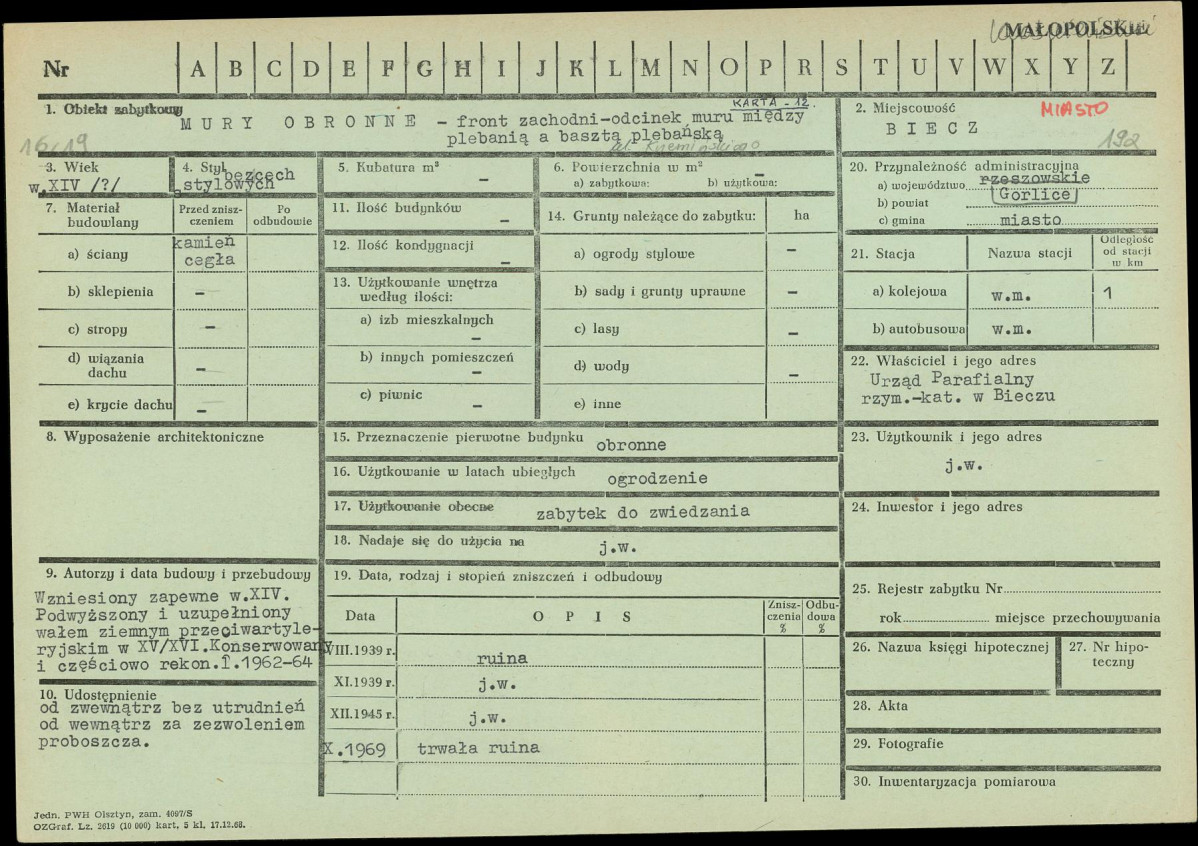 MAŁOPOLSKIE
Nr A B C D E F G H I J K L M N O P R S T U V W X Y Z
1. Obiekt zabytkowy
KARTA - 12.
MURY OBRONNE - front zachodni-odcinek muru między
plebanią a basztą plebańską
2. Miejscowość
MIASTO
BIECZ
192
16/19
3. Wiek
w.XIV /?/
4. Styl bezcech
stylowych
5. Kubatura m³ -
6. Powierzchnia w m² -
a) zabytkowa: b) użytkowa:
7. Materiał
budowlany
Przed znisz-
czeniem
Po
odbudowie
a) ściany kamień
cegła
b) sklepienia -
c) stropy -
d) wiązania
dachu -
e) krycie dachu -
11. Ilość budynków -
12. Ilość kondygnacji -
13. Użytkowanie wnętrza
według ilości:
a) izb mieszkalnych -
b) innych pomieszczeń -
c) piwnic -
14. Grunty należące do zabytku: ha
a) ogrody stylowe -
b) sady i grunty uprawne -
c) lasy -
d) wody -
e) inne
20. Przynależność administracyjna
a) województwo rzeszowskie
b) powiat Gorlice
c) gmina miasto
21. Stacja Nazwa stacji
Odległość
od stacji
w km
a) kolejowa w.m. 1
b) autobusowa w.m.
22. Właściciel i jego adres
Urząd Parafialny
rzym.-kat. w Bieczu
8. Wyposażenie architektoniczne
15. Przeznaczenie pierwotne budynku obronne
16. Użytkowanie w latach ubiegłych ogrodzenie
17. Użytkowanie obecne zabytek do zwiedzania
18. Nadaje się do użycia na j.w.
23. Użytkownik i jego adres
j.w.
24. Inwestor i jego adres
9. Autorzy i data budowy i przebudowy
Wzniesiony zapewne w.XIV.
Podwyższony i uzupełniony
wałem ziemnym przeciwartyle-
ryjskim w XV/XVI.Konserwowan
i częściowo rekon.r.1962-64
10. Udostępnienie
od zwewnątrz bez utrudnień
od wewnątrz za zezwoleniem
proboszcza.
19. Data, rodzaj i stopień zniszczeń i odbudowy
Data OPIS
Znisz-
czenia
%
Odbu-
dowa
%
VIII.1939 r. ruina
XI.1939 r. j.w.
XII.1945 r. j.w.
X.1969 trwała ruina
25. Rejestr zabytku Nr
rok miejsce przechowywania
26. Nazwa księgi hipotecznej
27. Nr hipo-
teczny
28. Akta
29. Fotografie
30. Inwentaryzacja pomiarowa
Jedn. PWH Olsztyn, zam. 4097/S
OZGraf. Lz. 2619 (10 000) kart, 5 kl, 17.12.68.